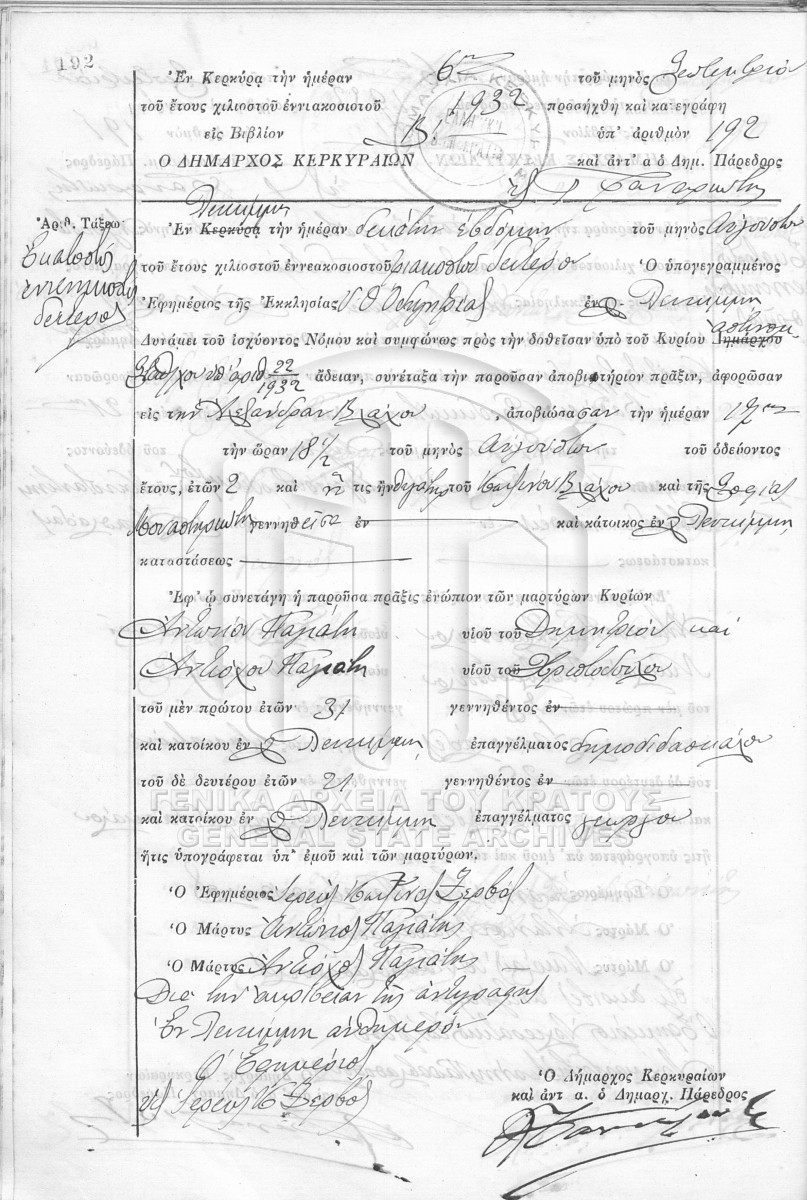 192
Ἐν Κερκύρᾳ τὴν ἡμέραν 6ην τοῦ μηνὸς Σεπτεμβρίου
τοῦ ἔτους χιλιοστοῦ ἐννιακοσιοτοῦ 1932 προσήχθη καὶ κατεγράφη
εἰς Βιβλίον Β. ὑπ' ἀριθμὸν 192
Ο ΔΗΜΑΡΧΟΣ ΚΕΡΚΥΡΑΙΩΝ καὶ ἀντ' α. ὁ Δημ. Πάρεδρος
Ἀριθ. Τάξεω
Ἑκατοστὸς
ἐνενηκοστὸς
δεύτερος
Λευκίμμῃ
Ἐν Κερκύρᾳ τὴν ἡμέραν δεκάτην ἑβδόμην τοῦ μηνὸς Αὐγούστου
τοῦ ἔτους χιλιοστοῦ ἐννεακοσιοστοῦ τριακοστοῦ δευτέρου Ὁ ὑπογεγραμμένος
Ἐφημέριος τῆς Ἐκκλησίας Υ. Θ. Ὁδηγητρίας ἐν Λευκίμμῃ
Δυνάμει τοῦ ἰσχύοντος Νόμου καὶ συμφώνως πρὸς τὴν δοθεῖσαν ὑπὸ τοῦ Κυρίου Δημάρχου ἀστυνομ.
Σταθμου ὑπ' ἀριθ 22/1932 ἄδειαν, συνέταξα τὴν παροῦσαν ἀποβιωτήριον πρᾶξιν, ἀφορῶσαν
εἰς την Ἀλεξάνδραν Βλάχου , ἀποβιώσασαν τὴν ἡμέραν 17ην
τὴν ὥραν 18 1/2 τοῦ μηνὸς Αὐγούστου τοῦ ὁδεύοντος
ἔτους, ἐτῶν 2 καὶ ἥτις ἦν θυγάτηρ τοῦ Κων/νου Βλάχου καὶ τῆς Σοφίας
Μοναστηριώτη γεννηθεῖσα ἐν καὶ κάτοικος ἐν Λευκίμμῃ
καταστάσεως
Ἐφ' ᾧ συνετάγη ἡ παροῦσα πρᾶξις ἐνώπιον τῶν μαρτύρων Κυρίων
Ἀντωνίου Παγιάτη υἱοῦ τοῦ Δημητρίου καὶ
Ἀντιόχου Παγιάτη υἱοῦ τοῦ Χριστοδούλου
τοῦ μὲν πρώτου ἐτῶν 31 γεννηθέντος ἐν
καὶ κατοίκου ἐν Λευκίμμῃ ἐπαγγέλματος δημοδιδασκάλου
τοῦ δὲ δευτέρου ἐτῶν 21 γεννηθέντος ἐν
ΓΕΝΙΚΑ ΑΡΧΕΙΑ ΤΟΥ ΚΡΑΤΟΥΣ
καὶ κατοίκου ἐν Λευκίμμῃ ἐπαγγέλματος γεωργοῦ
GENERAL STATE ARCHIVES
ἥτις ὑπογράφεται ὑπ' ἐμοῦ καὶ τῶν μαρτύρων.
Ὁ Ἐφημέριος Ἱερεὺς Κων/νος Ζερβὸς
Ὁ Μάρτυς Ἀντώνιος Παγιάτης
Ὁ Μάρτυς Ἀντίοχος Παγιάτης
Διὰ τὴν ἀκρίβειαν τῆς ἀντιγραφῆς
Ἐν Λευκίμμῃ αὐθημερόν
Ὁ Ἐφημέριος
Ἱερεὺς Κ Ζερβὸς
Ὁ Δήμαρχος Κερκυραίων
καὶ ἀντ α. ὁ Δημαρχ. Πάρεδρος